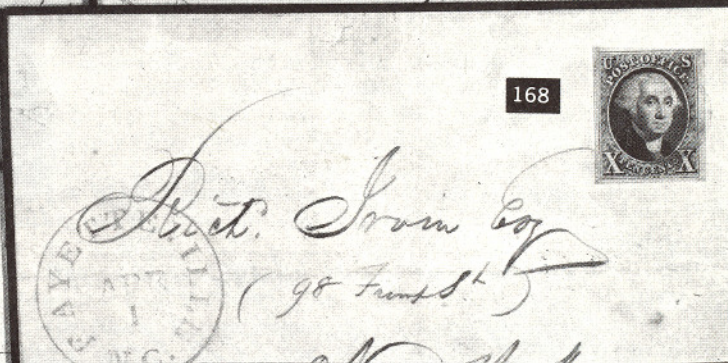 U S
POST OFFICE
X CENTS X
168
Richd. Irvin Esq
(98 Front St)
FAYETTEVILLE
APR
1
N.C.